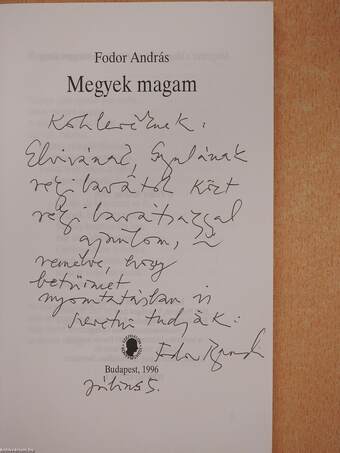 Fodor András
Megyek magam
Kohleréknek:
Elvirának, Gyulának
régi barátok közt
régi barátsággal
ajánlom,
remélve, hogy
betűimet
nyomtatásban is
szeretni tudják:
Fodor András
Budapest, 1996
július 5.